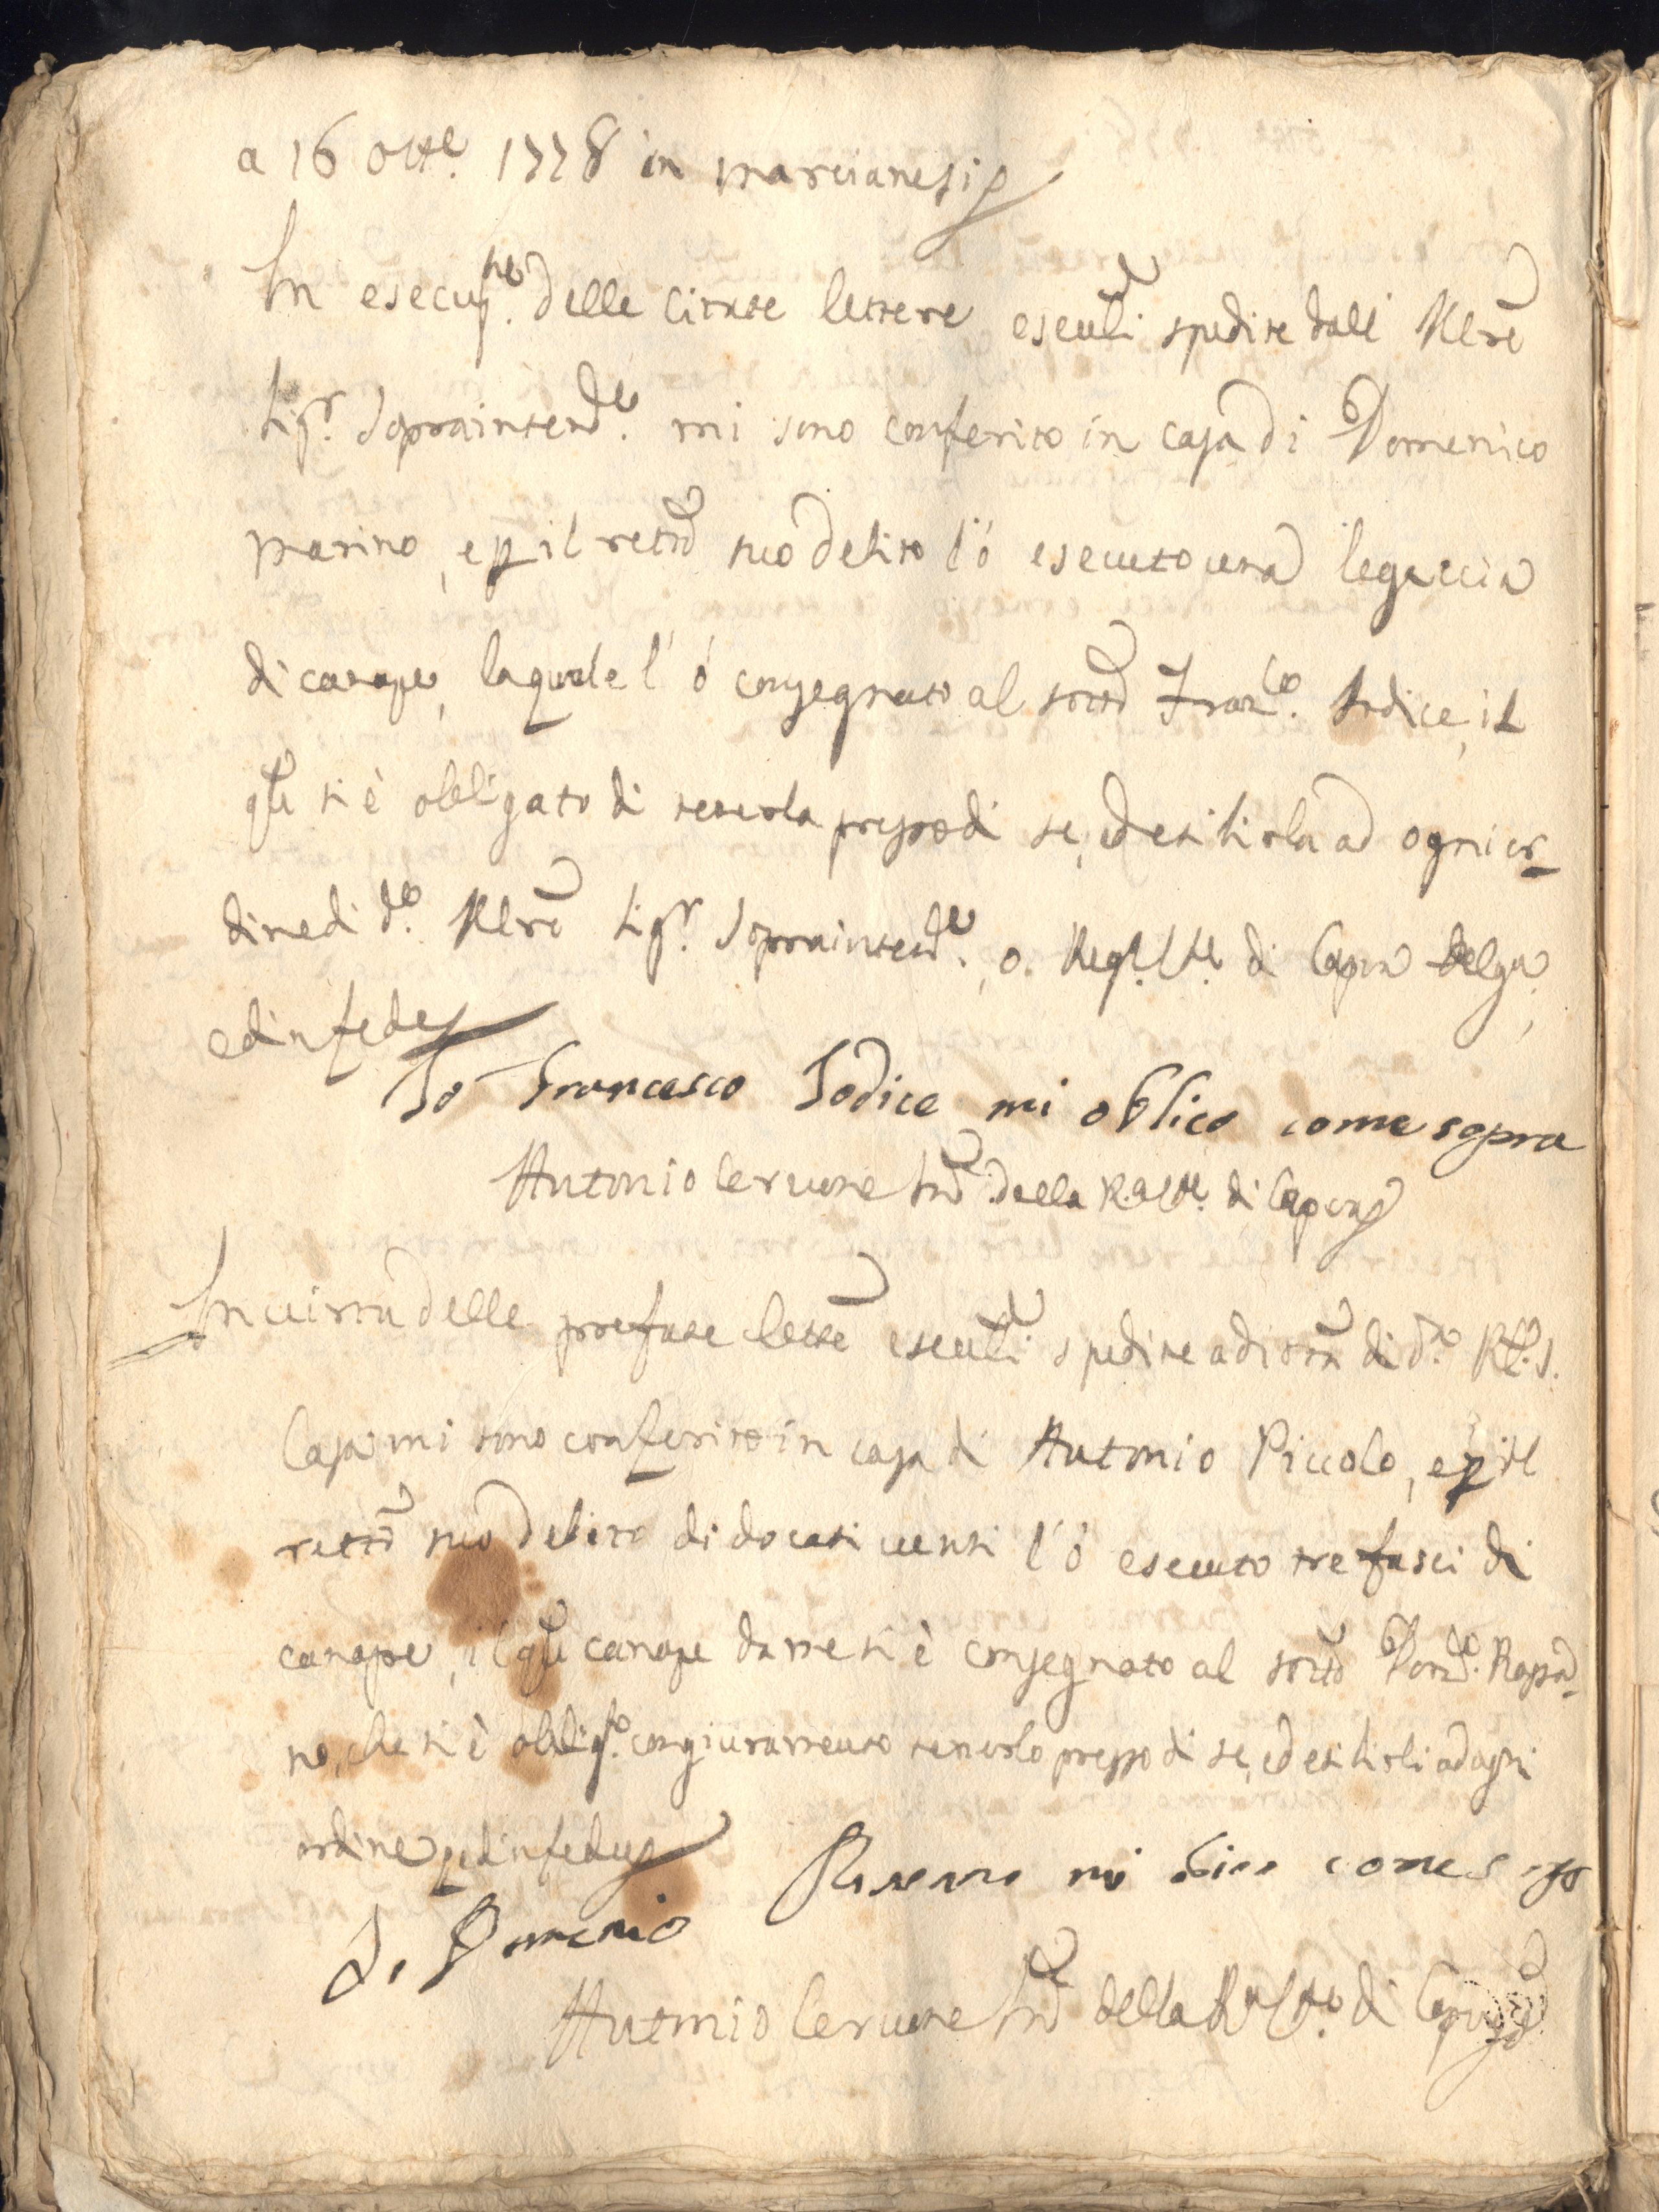 a 16 Ott.e 1778 in Marcianesi
In esecuz.ne delle citate lettere esecuti spedite dall' Illre
Sig.r Sopraintend.e mi sono conferito in casa di Domenico
Marino, e p il retto suo debito l'ó esecuto una legaccia
di canape, la quale l'ó consegnato al sotto Fran.co Iodice, il
qle si è obbligato di tenerla presso di se, ed esibirla ad ogni or-
dine di d.o Illre Sig.r Sopraintend.e, o Reg. C.te di Capua
ed in fede
Io Francesco Iodice mi oblico come sopra
Antonio Cervone della R.a C.te di Capua
In virtù delle prefate lette esecuti spedite ad istã di d.o
Casa mi sono conferito in casa di Antonio Piccolo, e p il
retto suo debito di docati venti l'ó esecuto tre fasci di
canape, il qle canape da me si è consegnato al sotto Dom.co Raßa-
no, che si è obblig.to con giuramento tenerlo presso di se, ed esibirli ad ogni
ordine, ed in fede
Io Domenico mi come sopra
Antonio Cervone della R.a C.te di Capua